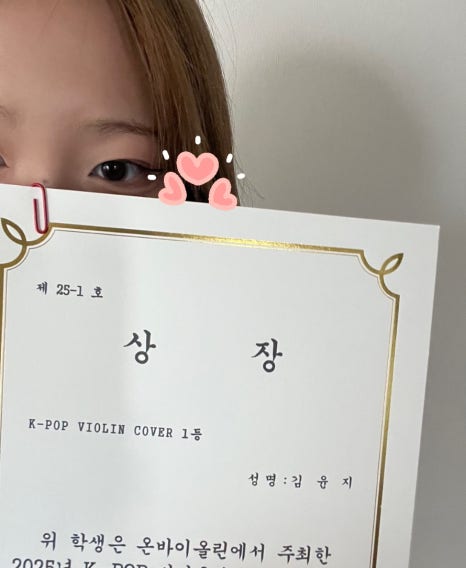 제 25-1 호
상 장
K-POP VIOLIN COVER 1등
성 명 : 김 윤 지
위 학생은 온바이올린에서 주최한
2025년 K-POP